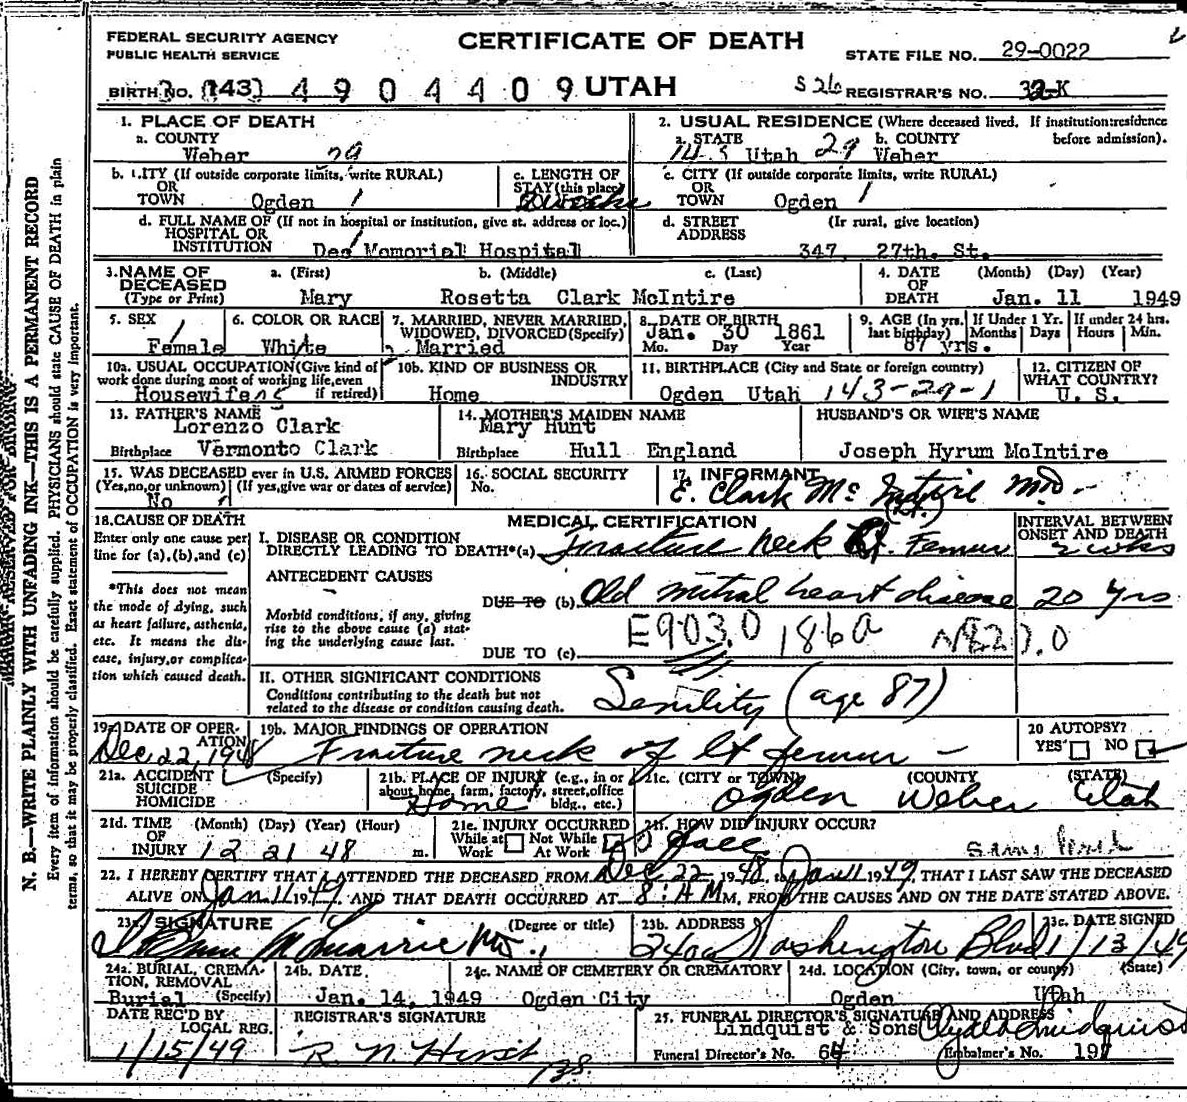 FEDERAL SECURITY AGENCY
PUBLIC HEALTH SERVICE
CERTIFICATE OF DEATH
STATE FILE NO. 29-0022
BIRTH NO. (143) 4904409 UTAH
S26 REGISTRAR'S NO. 32-K
1. PLACE OF DEATH
a. COUNTY
Weber 29
2. USUAL RESIDENCE (Where deceased lived. If institution:residence before admission).
a. STATE b. COUNTY
Utah 29 Weber
b. CITY (If outside corporate limits, write RURAL)
OR
TOWN Ogden 1
c. LENGTH OF
STAY (this place)
c. CITY (If outside corporate limits, write RURAL)
OR
TOWN Ogden 1
d. FULL NAME OF (If not in hospital or institution, give st. address or loc.)
HOSPITAL OR
INSTITUTION Dee Memorial Hospital
d. STREET (If rural, give location)
ADDRESS
347 27th. St.
3. NAME OF DECEASED
(Type or Print)
a. (First) b. (Middle) c. (Last)
Mary Rosetta Clark McIntire
4. DATE OF DEATH (Month) (Day) (Year)
Jan. 11 1949
5. SEX
Female
6. COLOR OR RACE
White
7. MARRIED, NEVER MARRIED, WIDOWED, DIVORCED (Specify)
Married
8. DATE OF BIRTH
Jan. 30 1861
Mo. Day Year
9. AGE (In yrs. last birthday)
87 yrs.
If Under 1 Yr. Months Days
If under 24 hrs. Hours Min.
10a. USUAL OCCUPATION (Give kind of work done during most of working life, even if retired)
Housewife
10b. KIND OF BUSINESS OR INDUSTRY
Home
11. BIRTHPLACE (City and State or foreign country)
Ogden Utah 143-29-1
12. CITIZEN OF WHAT COUNTRY?
U. S.
13. FATHER'S NAME
Lorenzo Clark
Birthplace Vermonto Clark
14. MOTHER'S MAIDEN NAME
Mary Hunt
Birthplace Hull England
HUSBAND'S OR WIFE'S NAME
Joseph Hyrum McIntire
15. WAS DECEASED ever in U.S. ARMED FORCES
(Yes, no, or unknown) (If yes, give war or dates of service)
No
16. SOCIAL SECURITY
No.
17. INFORMANT
E. Clark McIntire MD.
18. CAUSE OF DEATH
Enter only one cause per line for (a), (b), and (c)
*This does not mean the mode of dying, such as heart failure, asthenia, etc. It means the disease, injury, or complication which caused death.
MEDICAL CERTIFICATION
INTERVAL BETWEEN ONSET AND DEATH
I. DISEASE OR CONDITION
DIRECTLY LEADING TO DEATH*(a) Fracture neck Lt. Femur 3 wks
(Lt.)
ANTECEDENT CAUSES
Morbid conditions, if any, giving rise to the above cause (a) stating the underlying cause last.
DUE TO (b) Old mitral heart disease 20 yrs
E903.0 186a N820.0
DUE TO (c)
II. OTHER SIGNIFICANT CONDITIONS
Conditions contributing to the death but not related to the disease or condition causing death.
Senility (age 87)
19a. DATE OF OPERATION
Dec 22, 1948
19b. MAJOR FINDINGS OF OPERATION
Fracture neck of lt femur -
20 AUTOPSY?
YES NO
21a. ACCIDENT (Specify)
SUICIDE
HOMICIDE
21b. PLACE OF INJURY (e.g., in or about home, farm, factory, street, office bldg., etc.)
Home
21c. (CITY or TOWN) (COUNTY) (STATE)
Ogden Weber Utah
21d. TIME OF INJURY (Month) (Day) (Year) (Hour)
12 21 48 m.
21e. INJURY OCCURRED
While at Work Not While At Work
21f. HOW DID INJURY OCCUR?
Fall
22. I HEREBY CERTIFY THAT I ATTENDED THE DECEASED FROM Dec 22 1948, to Jan 11 1949, THAT I LAST SAW THE DECEASED
ALIVE ON Jan 11 1949, AND THAT DEATH OCCURRED AT M, FROM THE CAUSES AND ON THE DATE STATED ABOVE.
23a. SIGNATURE (Degree or title)
MD.
23b. ADDRESS
Washington Blvd
23c. DATE SIGNED
1/13/49
24a. BURIAL, CREMATION, REMOVAL (Specify)
Burial
24b. DATE
Jan. 14, 1949
24c. NAME OF CEMETERY OR CREMATORY
Ogden City
24d. LOCATION (City, town, or county) (State)
Ogden Utah
DATE REC'D BY LOCAL REG.
1/15/49
REGISTRAR'S SIGNATURE
R. N. Hirst
25. FUNERAL DIRECTOR'S SIGNATURE AND ADDRESS
Lindquist & Sons Clyde Lindquist
Funeral Director's No. 64 Embalmer's No. 191
N. B.—WRITE PLAINLY WITH UNFADING INK—THIS IS A PERMANENT RECORD
Every item of information should be carefully supplied. PHYSICIANS should state CAUSE OF DEATH in plain
terms, so that it may be properly classified. Exact statement of OCCUPATION is very important.